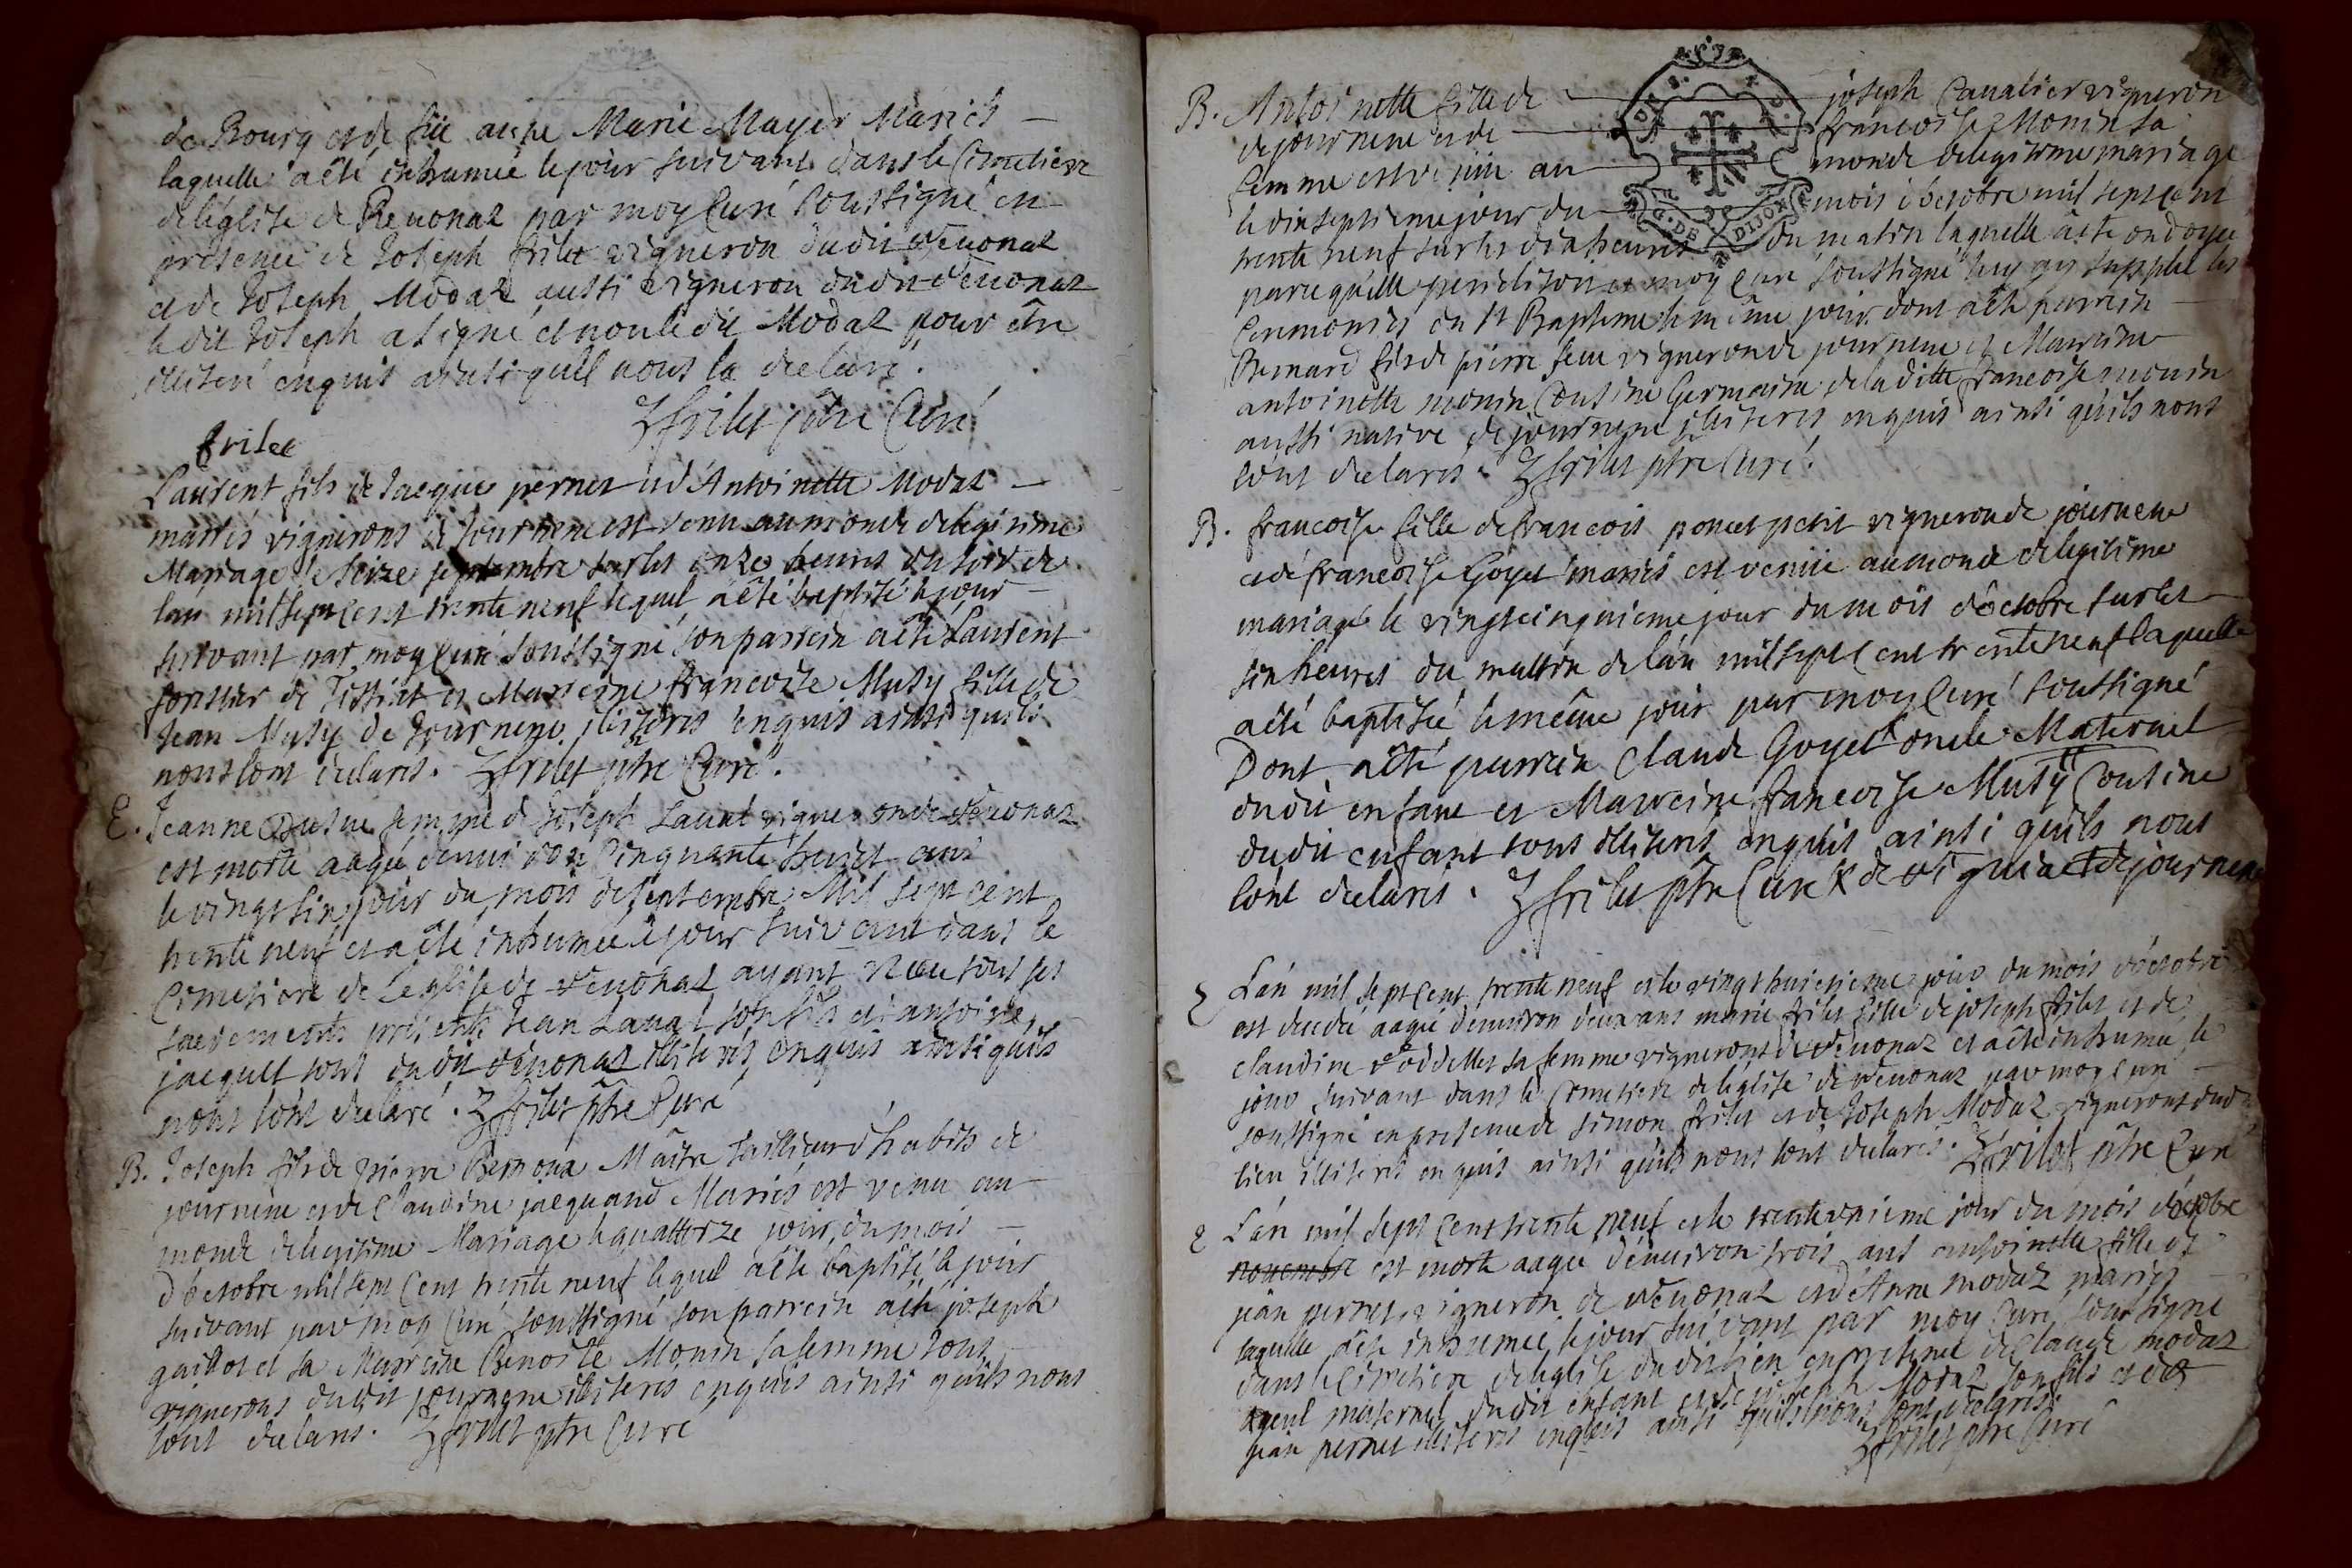 de Bourg et de feüe anne Marie Mayer Mariés
laquelle a êté inhumée le jour suivant dans le Cimetiere
de léglise de Revonaz par moy Curé soussigné en
présence de Joseph frilet vigneron dudit Revonaz
et de Joseph Modaz aussi vigneron dudit Revonaz
ledit Joseph a signé et non ledit Modaz pour être
illiteré enquis ainsi quil nous la declaré.
Zfrilet ptre Curé
frilet
Laurent fils de Jacque pernet et d'Antoinette Modaz
mariés vignerons de Journene est venu au monde de legitime
Mariage le seize septembre sur les onze heures du soir de
lan mil sept cent trente neuf lequel a êté baptisé le jour
suivant par moy Curé soussigné son parrein a êté Laurent
forstier de Tissiat et Marreine francoise Musy fille de
Jean Musy de Journene illiterés enquis ainsi quils
nous lont declarés. Zfrilet ptre Curé.
E. Jeanne femme de Joseph Laval vigneron de Revonaz
est morte aagée denviron Cinquante huict ans
le vingt sin jour du mois de septembre Mil sept cent
trente neuf et a êté inhumée le jour suivant dans le
Cimetiere de Leglise de Revonaz ayant recu tous ses
sacrements présents Jean Laval son fils et antoine
jaquet tous dudit Revonaz illiterés enquis ainsi quils
nous lont declaré. Zfrilet ptre Curé
B. Joseph fils de pierre Bemona Maitre tailleieur d'habits de
journene et de Claudine jacquand Mariés est venu au
monde de legitime Mariage le quattorze jour du mois
d'octobre mil sept Cent trente neuf lequel a êté baptisé le jour
suivant par moy Curé soussigné son parrein a êté joseph
guillot et sa Marreine Benoite Monin sa femme tous
vignerons dudit journene illiterés enquis ainsi quils nous
lont declarés. Zfrilet ptre Curé
B. Antoinette fille de joseph Cavalier vigneron
de journene et de francoise Monin sa
femme est venüe au monde de legitime mariage
le dixseptieme jour du mois d'octobre mil sept cent
trente neuf sur les dix heures du matin laquelle a êté ondoyée
parcequ'elle periclitoit et moy Curé soussigné luy ais supplée les
Ceremonies du St Baptême le même jour dont a êté parrein
Bernard fils de pierre feue vigneron de journene et Marreine
antoinette monin Cousine Germaine de laditte francoise monin
aussi native de journene illiterés enquis ainsi qu'ils nous
lónt declarés. Zfrilet ptre Curé.
B. francoise fille de francois poncet petit vigneron de journene
et de francoise Goyet mariés est venüe au monde de legitime
mariage le vingtcinquieme jour du mois d'octobre sur les
sin heures du mattin de lán mil sept Cent trente neuf laquelle
a êté baptisée le même jour par moy Curé soussigné
Dont a êté parrein Claude Goyet X oncle Maternel
dudit enfant et Marreine francoise Musÿ Cousine
dudit enfant tous illiterés enquis ainsi qu'ils nous
lónt declarés. Zfrilet ptre Curé X de et de journene
E Lán mil sept Cent trente neuf et le vingt huictieme jour du mois d'óctobre
est decedée aagée denviron deux ans marie frilet fille de joseph frilet et de
claudine sa femme vignerons de Revonaz et a êté inhumée le
jour suivant dans le Cimetiere de léglise de Revonaz par moy Curé
soussigné en presence de simon frilet et de Joseph Modaz vignerons dudit
lieu illiterés enquis ainsi qu'ils nous lont declarés. Zfrilet ptre Curé
E Lán mil sept Cent trente neuf et le trente unieme jour du mois d'octobre
novembre est morte aagée d'énviron trois ans antoinette fille de
jean pernet vigneron de Revonaz et d'Anne modaz mariés
laquelle a êté inhumée le jour suivant par moy Curé soussigné
dans le Cimetiere de leglise dudit lieu en presence de Claude modaz
ayeul maternel dudit enfant et de joseph Modaz son fils et de
jean pernet illiterés enquis ainsi qu'ils nous lont declarés.
Zfrilet ptre Curé
G. DE DIJON